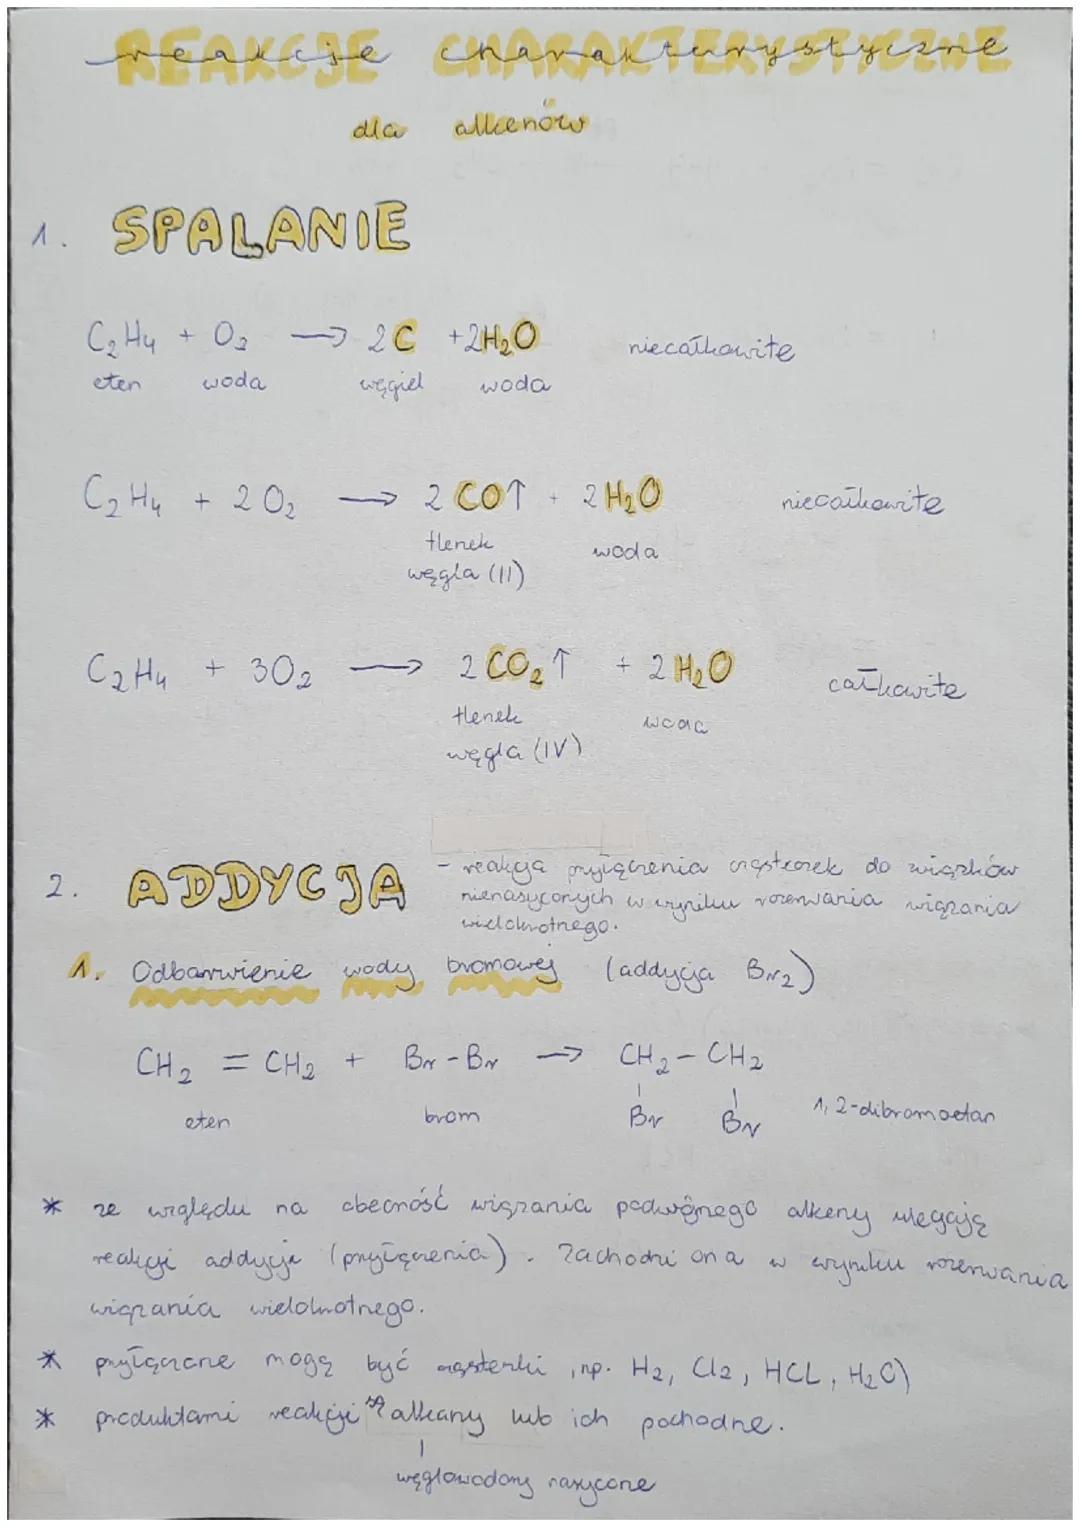 reakcje charakterystyczne
REAKCJE CHARAKTERYSTYCZNE
dla alkenów
1. SPALANIE
C₂H₄ + O₂ → 2C + 2H₂O niecałkowite
eten woda węgiel woda
C₂H₄ + 2O₂ → 2CO↑ + 2H₂O niecałkowite
tlenek woda
węgla (II)
C₂H₄ + 3O₂ → 2CO₂↑ + 2H₂O całkowite
tlenek woda
węgla (IV)
2. ADDYCJA - reakcja przyłączenia cząsteczek do związków
nienasyconych w wyniku rozerwania wiązania
wielokrotnego.
1. Odbarwienie wody bromowej (addycja Br₂)
CH₂ = CH₂ + Br-Br → CH₂ - CH₂
eten brom Br Br 1,2-dibromoetan
* ze względu na obecność wiązania podwójnego alkeny ulegają
reakcji addycji (przyłączenia). Zachodzi ona w wyniku rozerwania
wiązania wielokrotnego.
* przyłączane mogą być cząsteczki, np. H₂, Cl₂, HCL, H₂O)
* produktami reakcji są alkany lub ich pochodne.
węglowodory nasycone